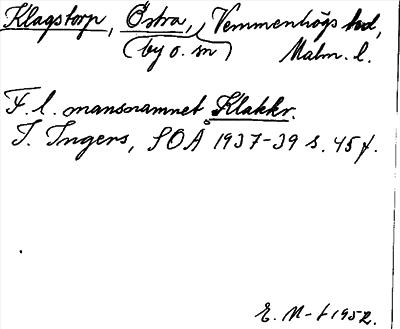 Klagstorp, Östra, Vemmenhögs hd,
(by o. sn) Malm. l.
F. l. mansnamnet Klakkr.
I. Ingers, SOÅ 1937-39 s. 45 f.
E. M-t 1952.